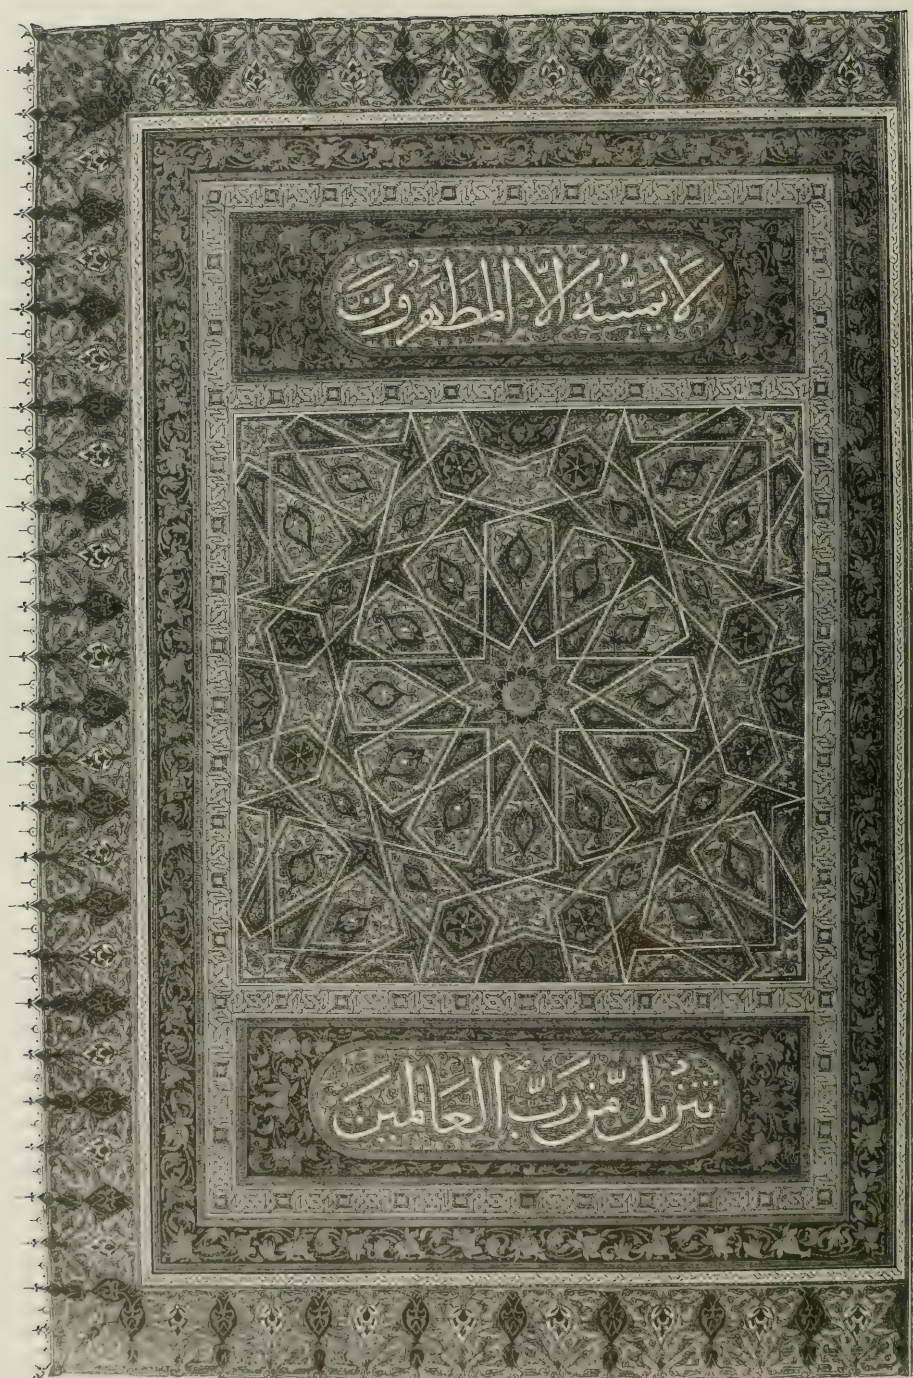 لَا يَمَسُّهُ إِلَّا الْمُطَهَّرُونَ
تَنْزِيلٌ مِّن رَّبِّ الْعَالَمِينَ